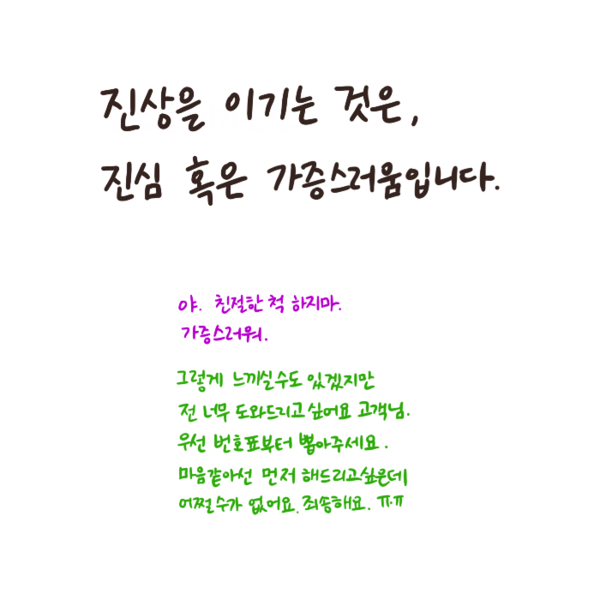 진상을 이기는 것은,
진심 혹은 가증스러움입니다.
야. 친절한 척 하지마.
가증스러워.
그렇게 느끼실수도 있겠지만
전 너무 도와드리고싶어요 고객님.
우선 번호표부터 뽑아주세요.
마음같아선 먼저 해드리고싶은데
어쩔수가 없어요. 죄송해요. ㅠ.ㅠ